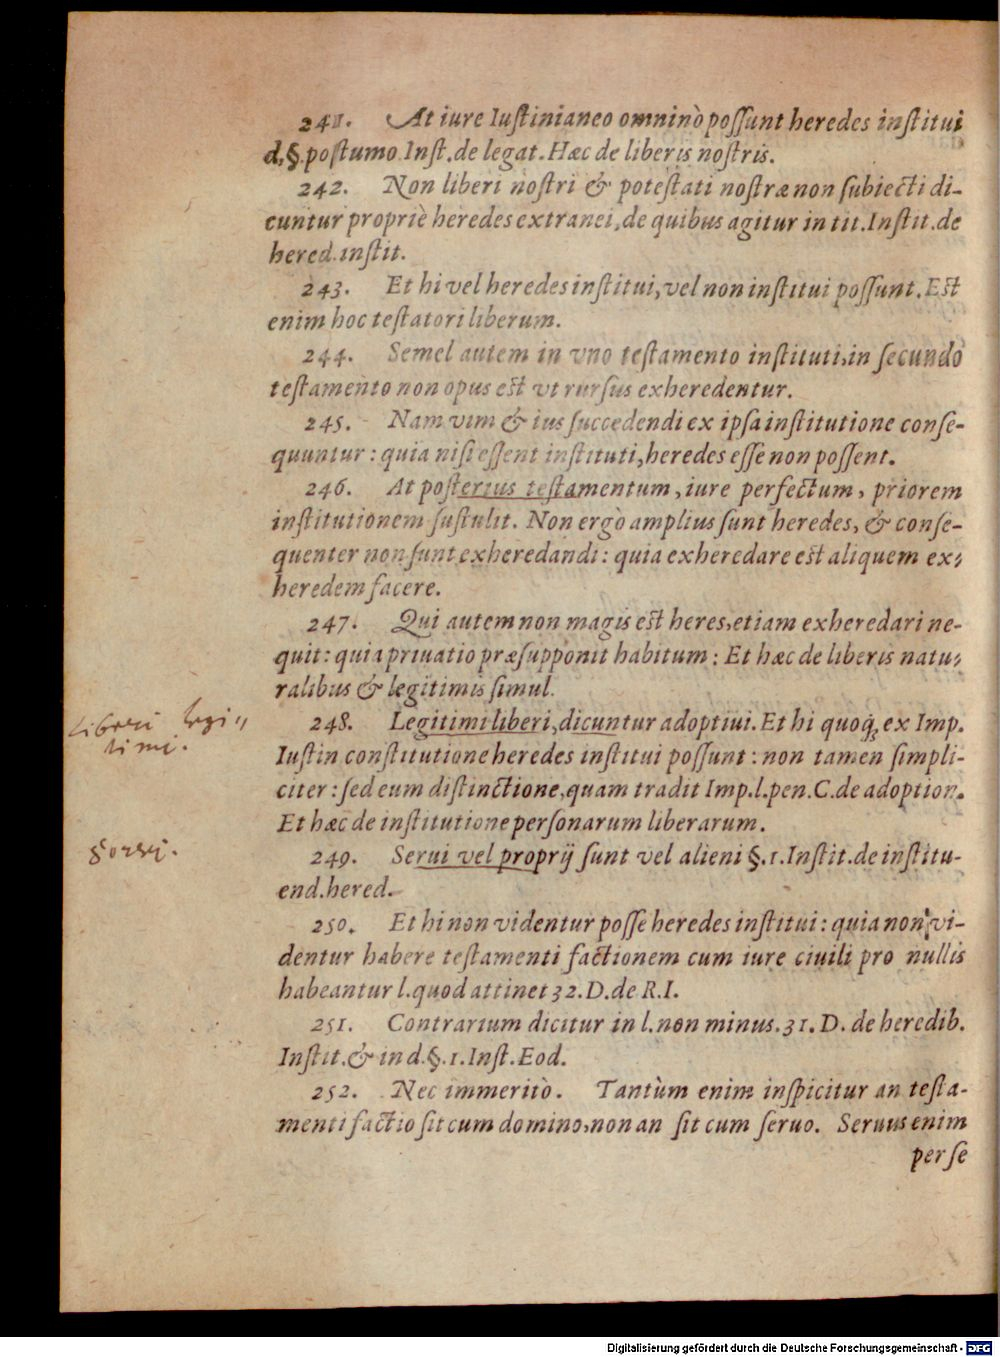 241. At iure Iuſtinianeo omninò poſſunt heredes inſtitui
d.§.poſtumo Inſt.de legat. Hæc de liberis noſtris.
242. Non liberi noſtri & poteſtati noſtræ non ſubiecti di-
cuntur propriè heredes extranei, de quibus agitur in tit. Inſtit.de
hered.inſtit.
243. Et hi vel heredes inſtitui, vel non inſtitui poſſunt. Eſt
enim hoc teſtatori liberum.
244. Semel autem in vno teſtamento inſtituti, in ſecundo
teſtamento non opus eſt vt rurſus exheredentur.
245. Nam vim & ius ſuccedendi ex ipſa inſtitutione conſe-
quuntur: quia niſi eſſent inſtituti, heredes eſſe non poſſent.
246. At poſterius teſtamentum, iure perfectum, priorem
inſtitutionem ſuſtulit. Non ergò amplius ſunt heredes, & conſe-
quenter non ſunt exheredandi: quia exheredare eſt aliquem ex-
heredem facere.
247. Qui autem non magis eſt heres, etiam exheredari ne-
quit: quia priuatio præſupponit habitum: Et hæc de liberis natu-
ralibus & legitimis ſimul.
Liberi legi„
timi.
248. Legitimi liberi, dicuntur adoptiui. Et hi quoq; ex Imp.
Iuſtin conſtitutione heredes inſtitui poſſunt: non tamen ſimpli-
citer: ſed eum diſtinctione, quam tradit Imp.l.pen.C.de adoption.
Et hæc de inſtitutione perſonarum liberarum.
249. Serui vel proprij ſunt vel alieni §.1.Inſtit.de inſtitu-
end.hered.
250. Et hi non videntur poſſe heredes inſtitui: quia non vi-
dentur habere teſtamenti factionem cum iure ciuili pro nullis
habeantur l.quod attinet 32.D.de R.I.
251. Contrarium dicitur in l.non minus.31.D. de heredib.
Inſtit.& in d.§.1.Inſt.Eod.
252. Nec immeritò. Tantùm enim inſpicitur an teſta-
menti factio ſit cum domino, non an ſit cum ſeruo. Seruus enim
per ſe
Digitalisierung gefördert durch die Deutsche Forschungsgemeinschaft - DFG